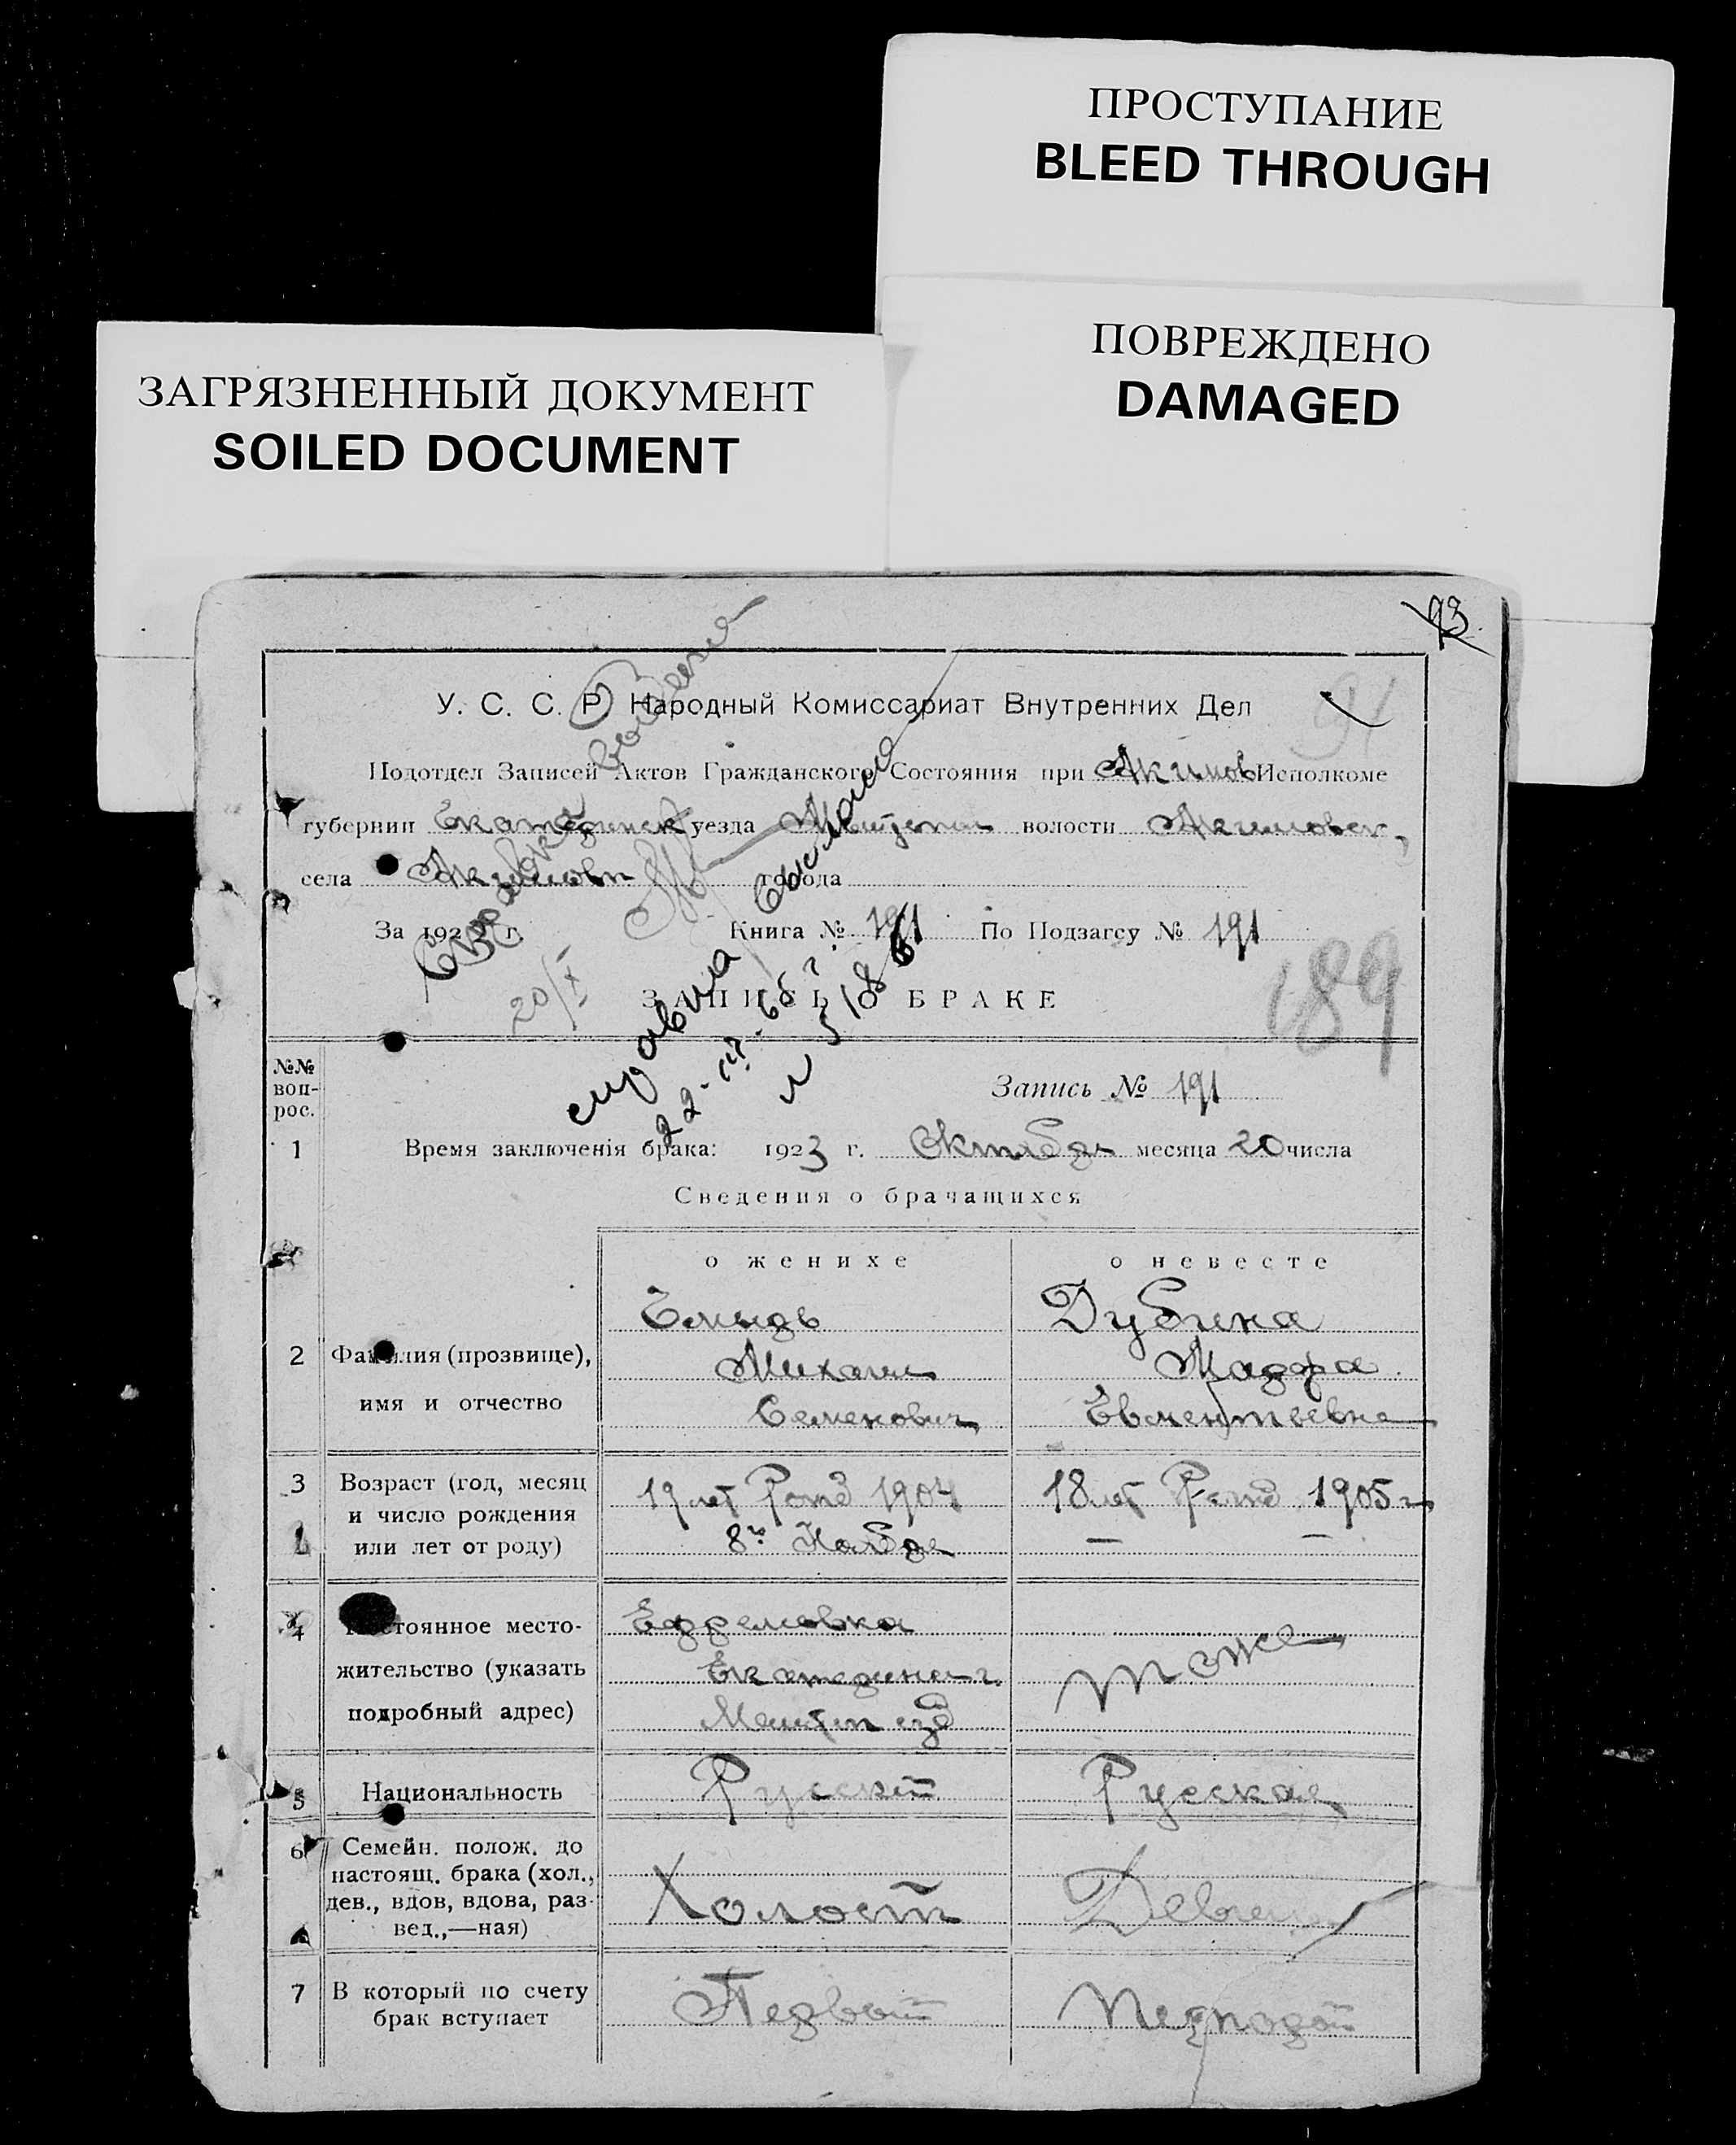 ПРОСТУПАНИЕ
BLEED THROUGH
ПОВРЕЖДЕНО
DAMAGED
ЗАГРЯЗНЕННЫЙ ДОКУМЕНТ
SOILED DOCUMENT
93
91
У. С. С. Р. Народный Комиссариат Внутренних Дел
Подотдел Записей Актов Гражданского Состояния при Акимов Исполкоме
губернии Екатеринск уезда волости Акимовск
села Акимовки города
За 192 г. Книга № 191 По Подзагсу № 191
20/X
справка выслана
№ 5186
189
ЗАПИСЬ О БРАКЕ
№№ воп-рос.
Запись № 191
1 Время заключенія брака: 1923 г. Октябрь месяца 20 числа
Сведения о брачащихся
о женихе о невесте
2 Фамилия (прозвище),
имя и отчество
Дубина
Михаил Марфа
Семенович Евментьевна
3 Возраст (год, месяц
и число рождения
или лет от роду)
19 лет Рожд 1904 18 лет Рожд 1905 г
8го Ноября — —
4 Постоянное место-
жительство (указать
подробный адрес)
Ефремовка
Екатерин г. тоже
Мелитоп уезд
5 Национальность Русский Русская
6 Семейн. полож. до
настоящ. брака (хол.,
дев., вдов, вдова, раз-
вед.,—ная)
Холост Девица
7 В который по счету
брак вступает
Первый Первый